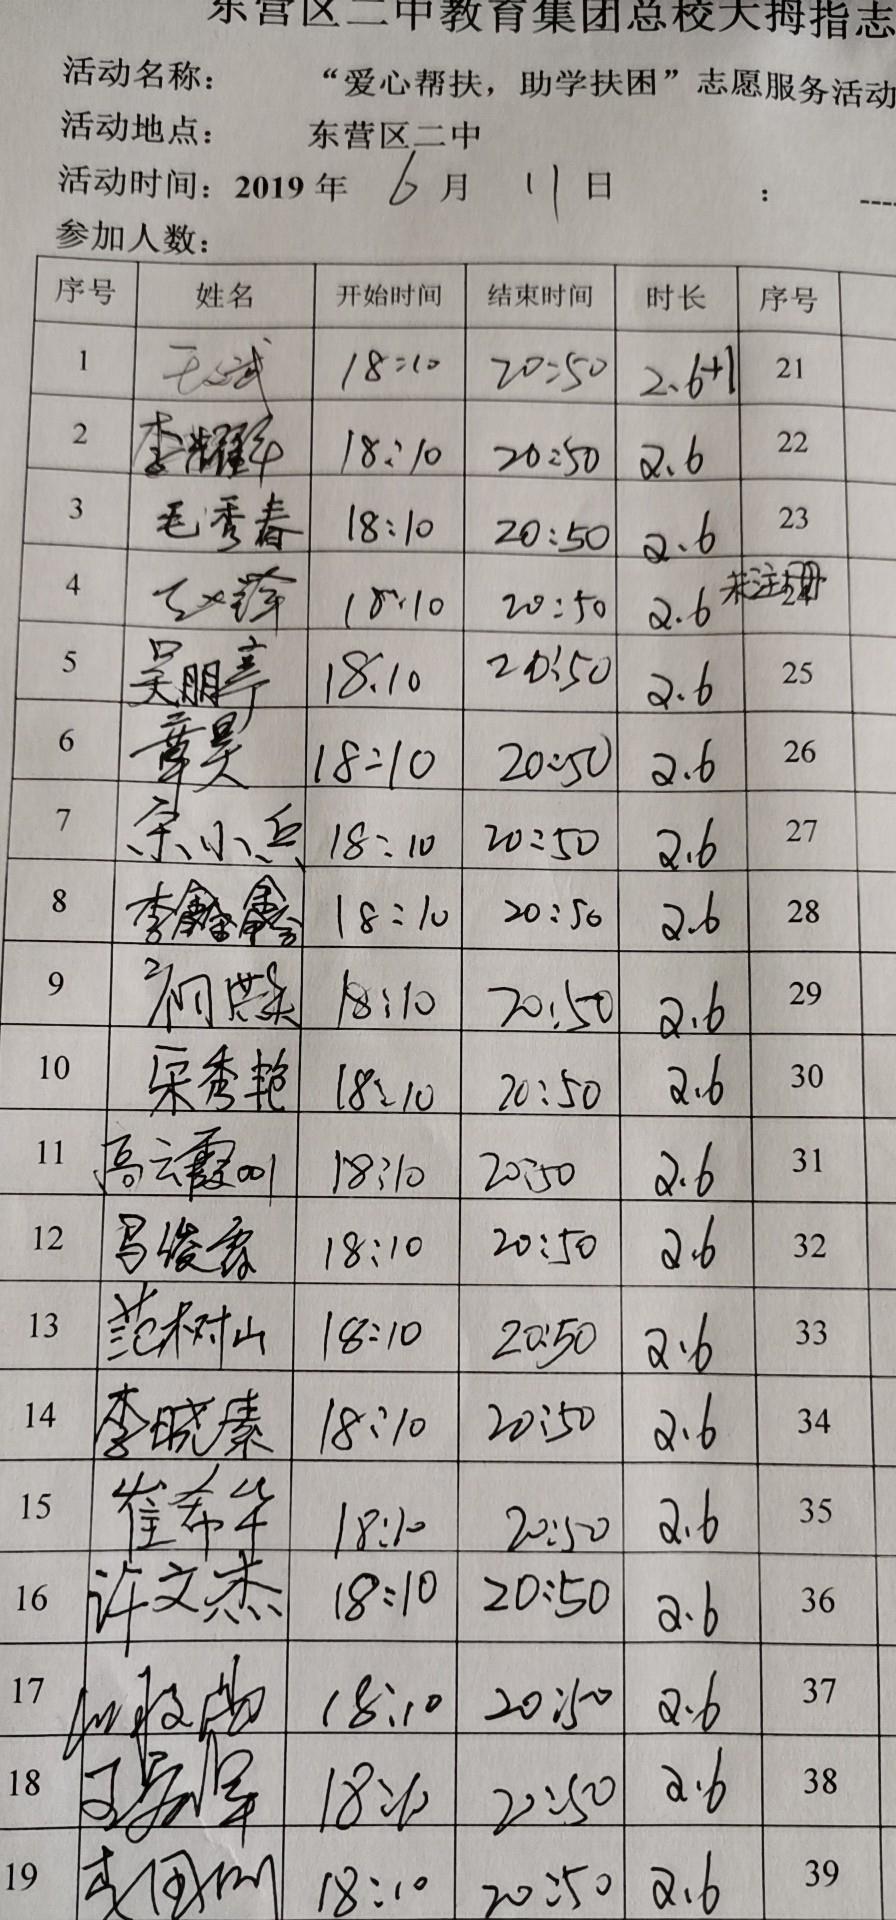 东营区二中教育集团总校大拇指志
活动名称： “爱心帮扶，助学扶困”志愿服务活动
活动地点： 东营区二中
活动时间：2019 年 6 月 11 日 ： ----
参加人数：
序号 姓名 开始时间 结束时间 时长 序号
1 18:10 20:50 2.6+1 21
2 李耀军 18:10 20:50 2.6 22
3 毛秀春 18:10 20:50 2.6 23
4 18:10 20:50 2.6 未注册 24
5 吴朋亭 18:10 20:50 2.6 25
6 章昊 18:10 20:50 2.6 26
7 宋小兵 18:10 20:50 2.6 27
8 李 18:10 20:50 2.6 28
9 18:10 20:50 2.6 29
10 宋秀艳 18:10 20:50 2.6 30
11 高云霞001 18:10 20:50 2.6 31
12 18:10 20:50 2.6 32
13 范树山 18:10 20:50 2.6 33
14 李晓素 18:10 20:50 2.6 34
15 崔希华 18:10 20:50 2.6 35
16 许文杰 18:10 20:50 2.6 36
17 18:10 20:50 2.6 37
18 18:10 20:50 2.6 38
19 18:10 20:50 2.6 39